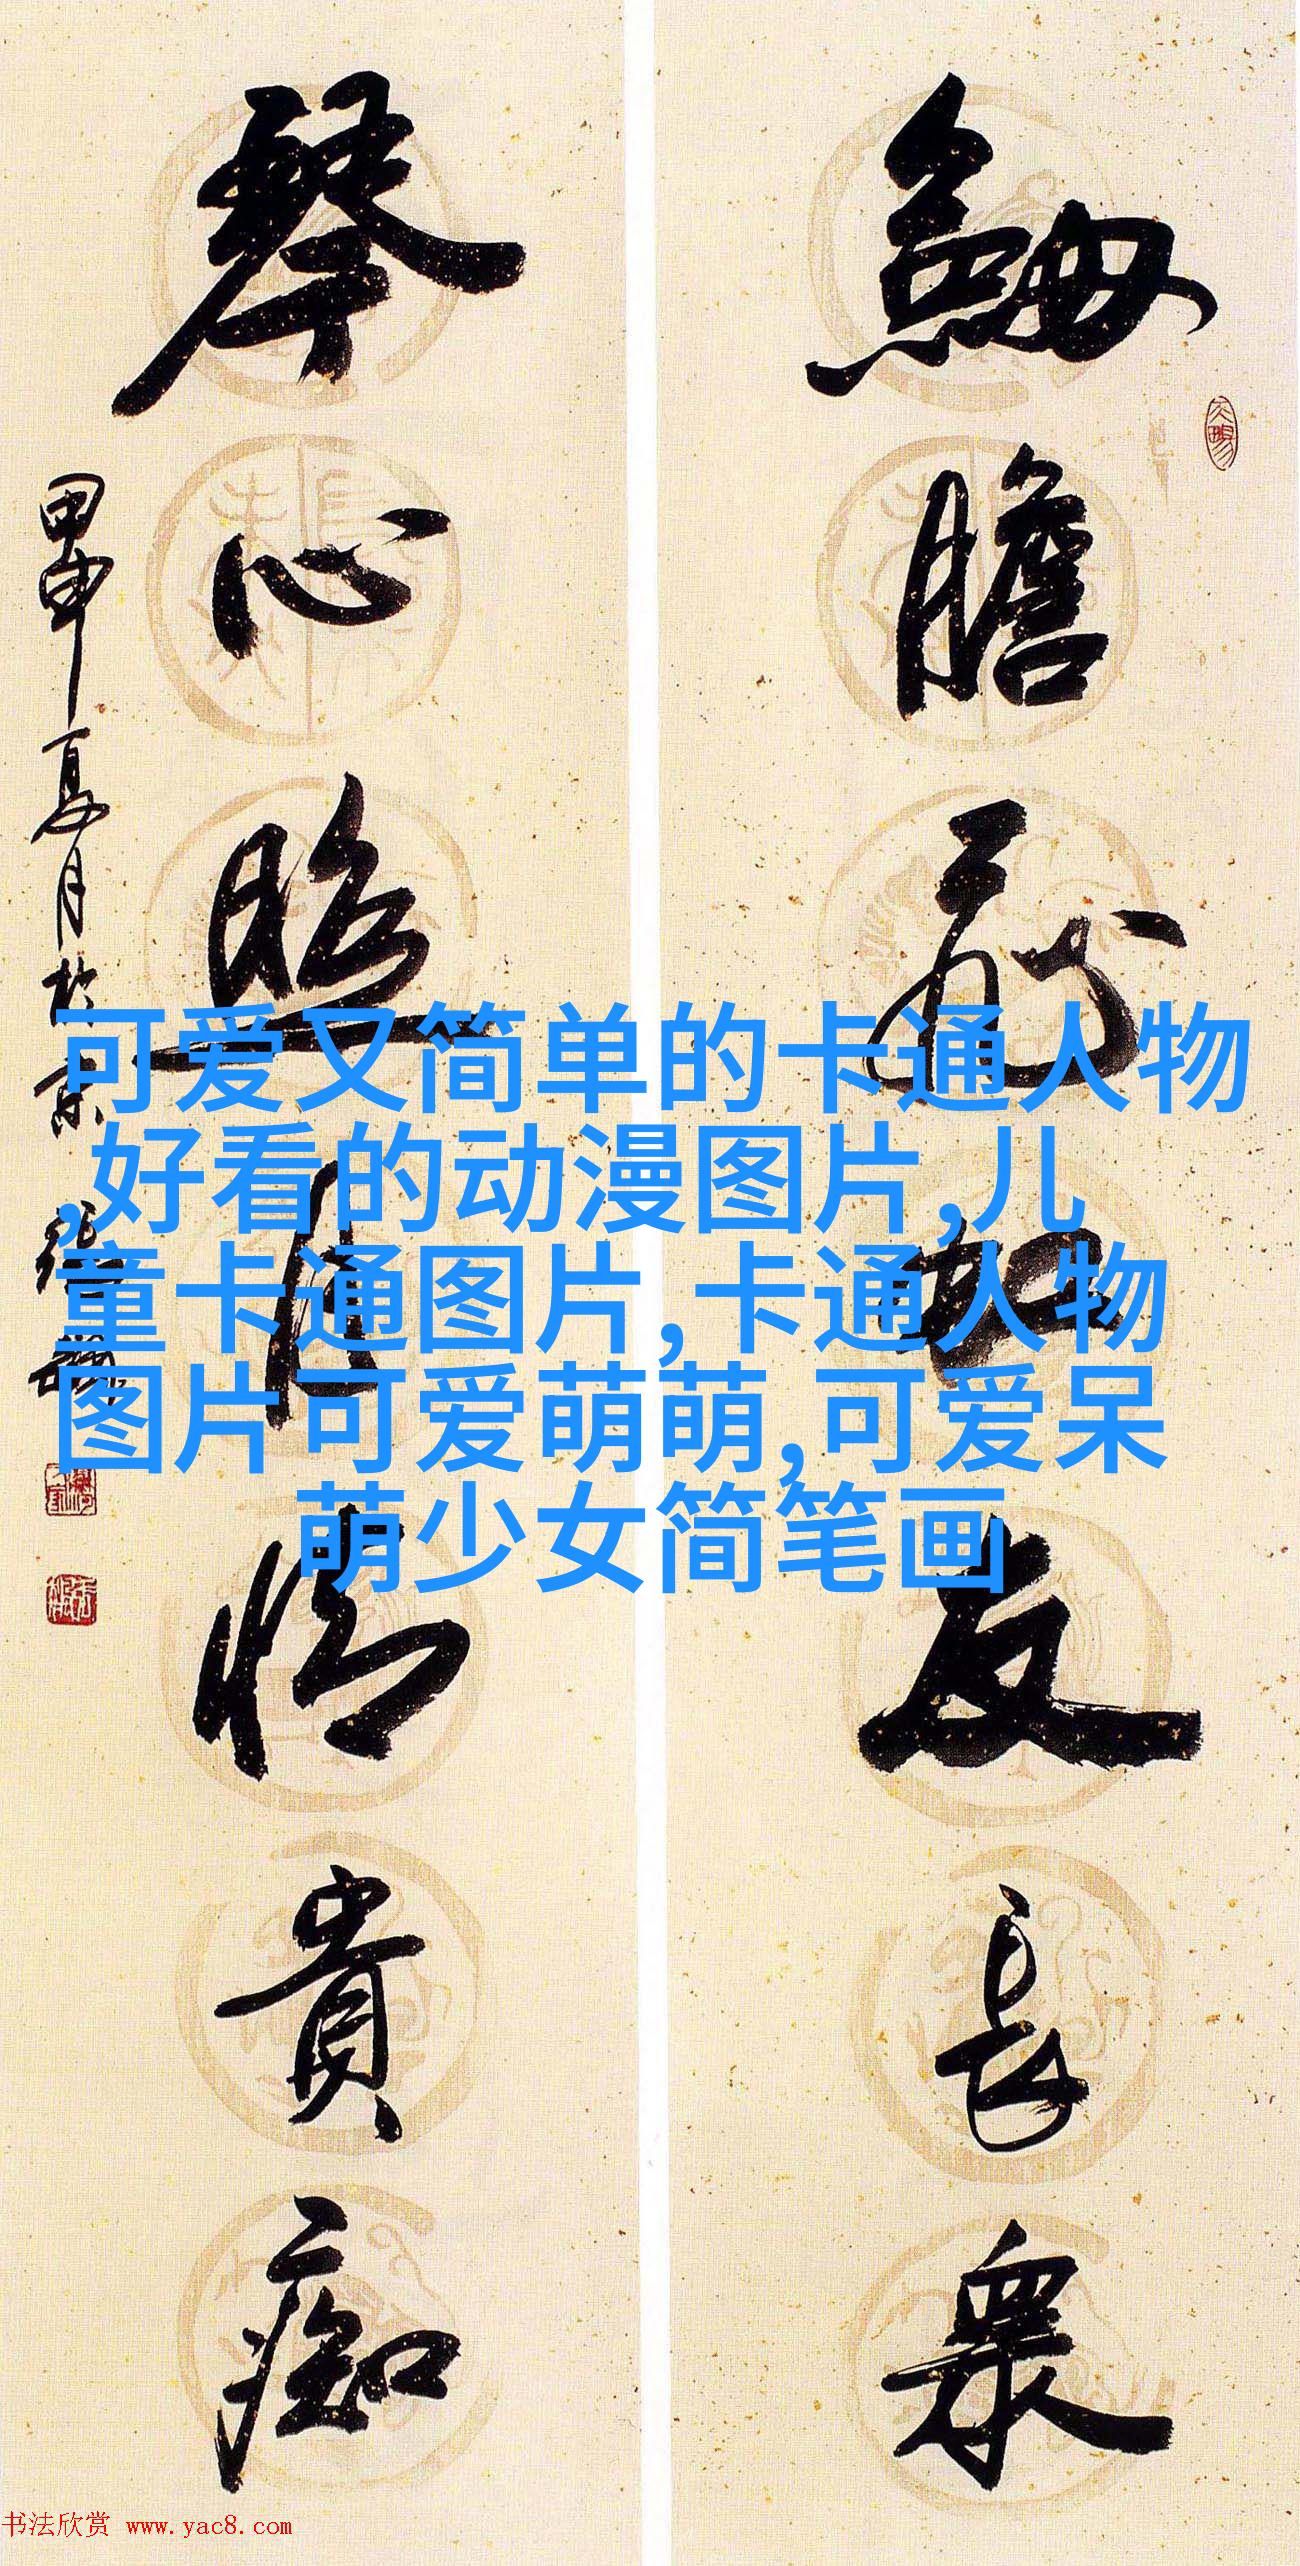 琴心
照
月
情
貴
痴
膽
友
長
眾
甲申夏月於京
可爱又简单的卡通人物
,好看的动漫图片,儿
童卡通图片,卡通人物
图片可爱萌萌,可爱呆
萌少女简笔画
书法欣赏 www.yac8.com